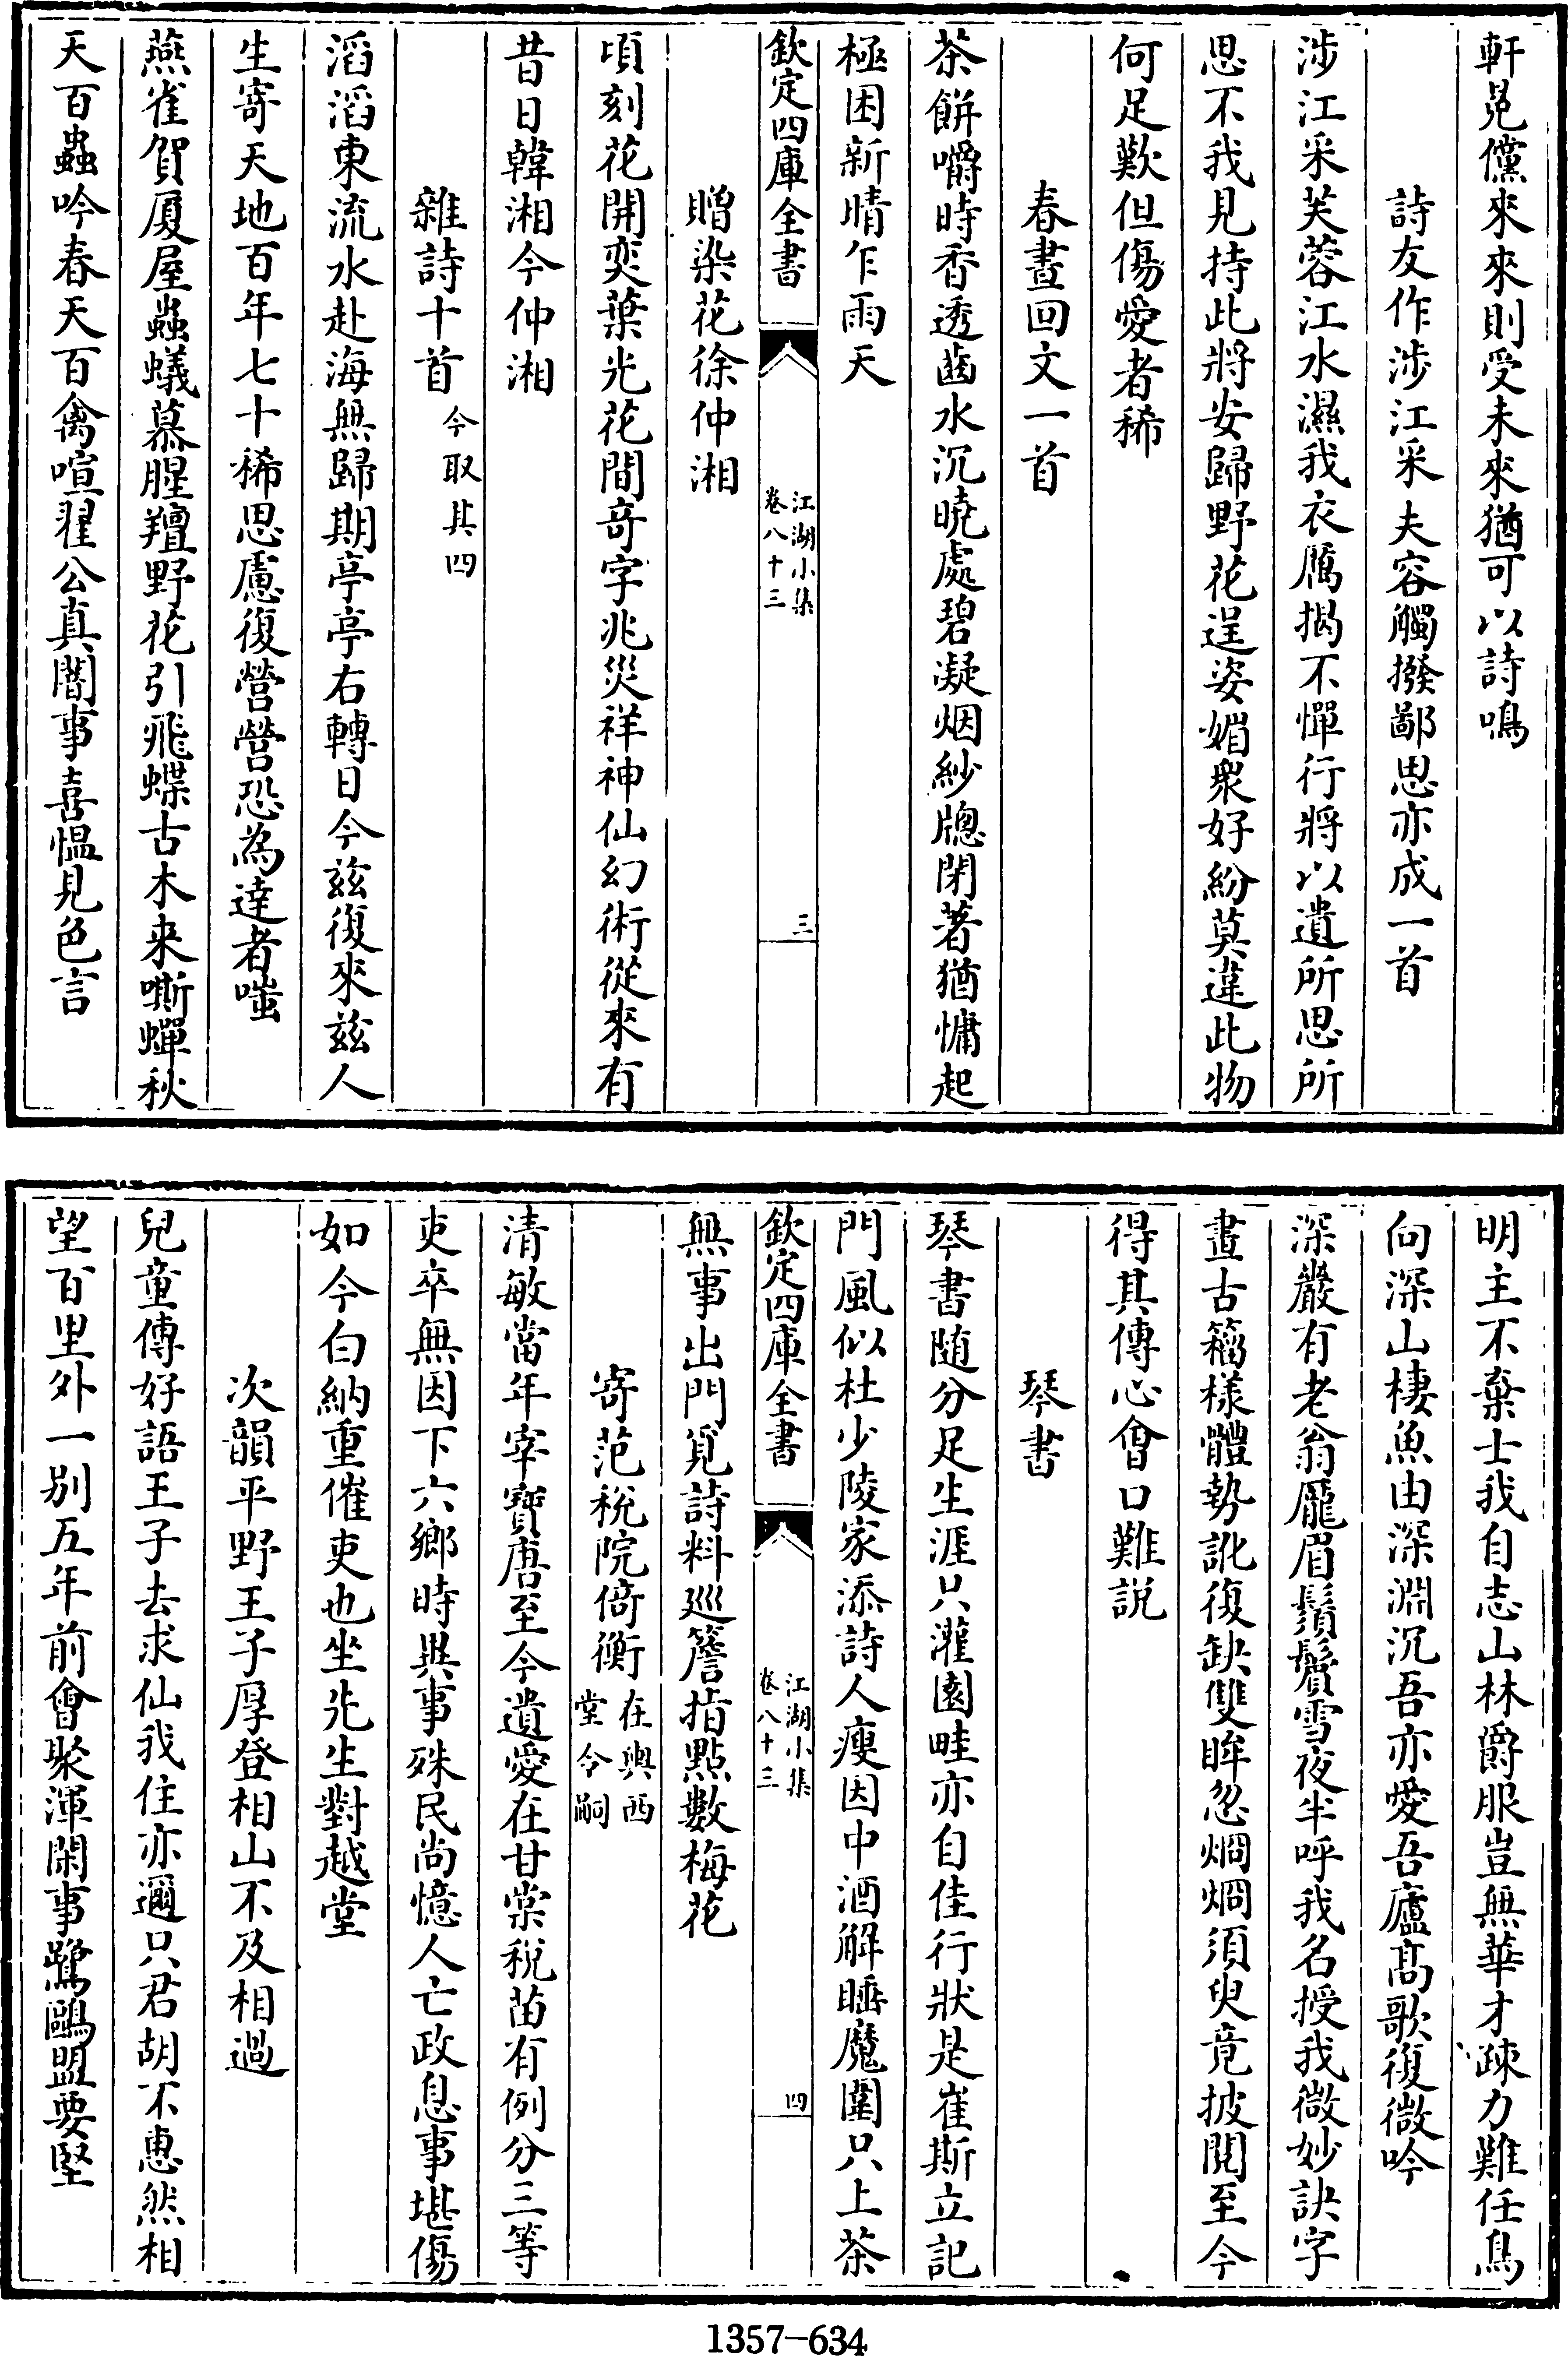 軒冕儻來來則受未來猶可以詩鳴
詩友作涉江采夫容觸撥鄙思亦成一首
涉江采芙蓉江水濕我衣厲揭不憚行將以遺所思所
思不我見持此將安歸野花逞姿媚衆好紛莫違此物
何足歎但傷愛者稀
春晝回文一首
茶餅嚼時香透齒水沉曉處碧凝烟紗牕閉著猶慵起
極困新晴乍雨天
欽定四庫全書
江湖小集
卷八十三
三
贈染花徐仲湘
頃刻花開奕葉光花間竒字兆災祥神仙幻術從來有
昔日韓湘今仲湘
雜詩十首今取其四
滔滔東流水赴海無歸期亭亭右轉日今兹復來兹人
生寄天地百年七十稀思慮復營營恐為達者嗤
燕雀賀厦屋蟲蟻慕腥羶野花引飛蝶古木来嘶蟬秋
天百蟲吟春天百禽喧翟公真闇事喜愠見色言
明主不棄士我自志山林爵服豈無華才疎力難任鳥
向深山棲魚由深淵沉吾亦愛吾廬髙歌復微吟
深巖有老翁龎眉鬚鬢雪夜半呼我名授我微妙訣字
畫古籀樣體勢訛復缺雙眸忽烱烱須臾竟披閱至今
得其傳心會口難説
琴書
琴書随分足生涯只灌園畦亦自佳行狀是崔斯立記
門風似杜少陵家添詩人瘦因中酒解睡魔圍只上茶
欽定四庫全書
江湖小集
卷八十三
四
無事出門覓詩料廵簷指點數梅花
寄范稅院倚衡在輿西
堂今嗣
清敏當年宰寳唐至今遺愛在甘棠稅苗有例分三等
吏卒無因下六鄉時異事殊民尚憶人亡政息事堪傷
如今白納重催吏也坐先生對越堂
次韻平野王子厚登相山不及相過
兒童傳好語王子去求仙我住亦邇只君胡不惠然相
望百里外一别五年前㑹聚渾閑事鷺鷗盟要堅
1357-634